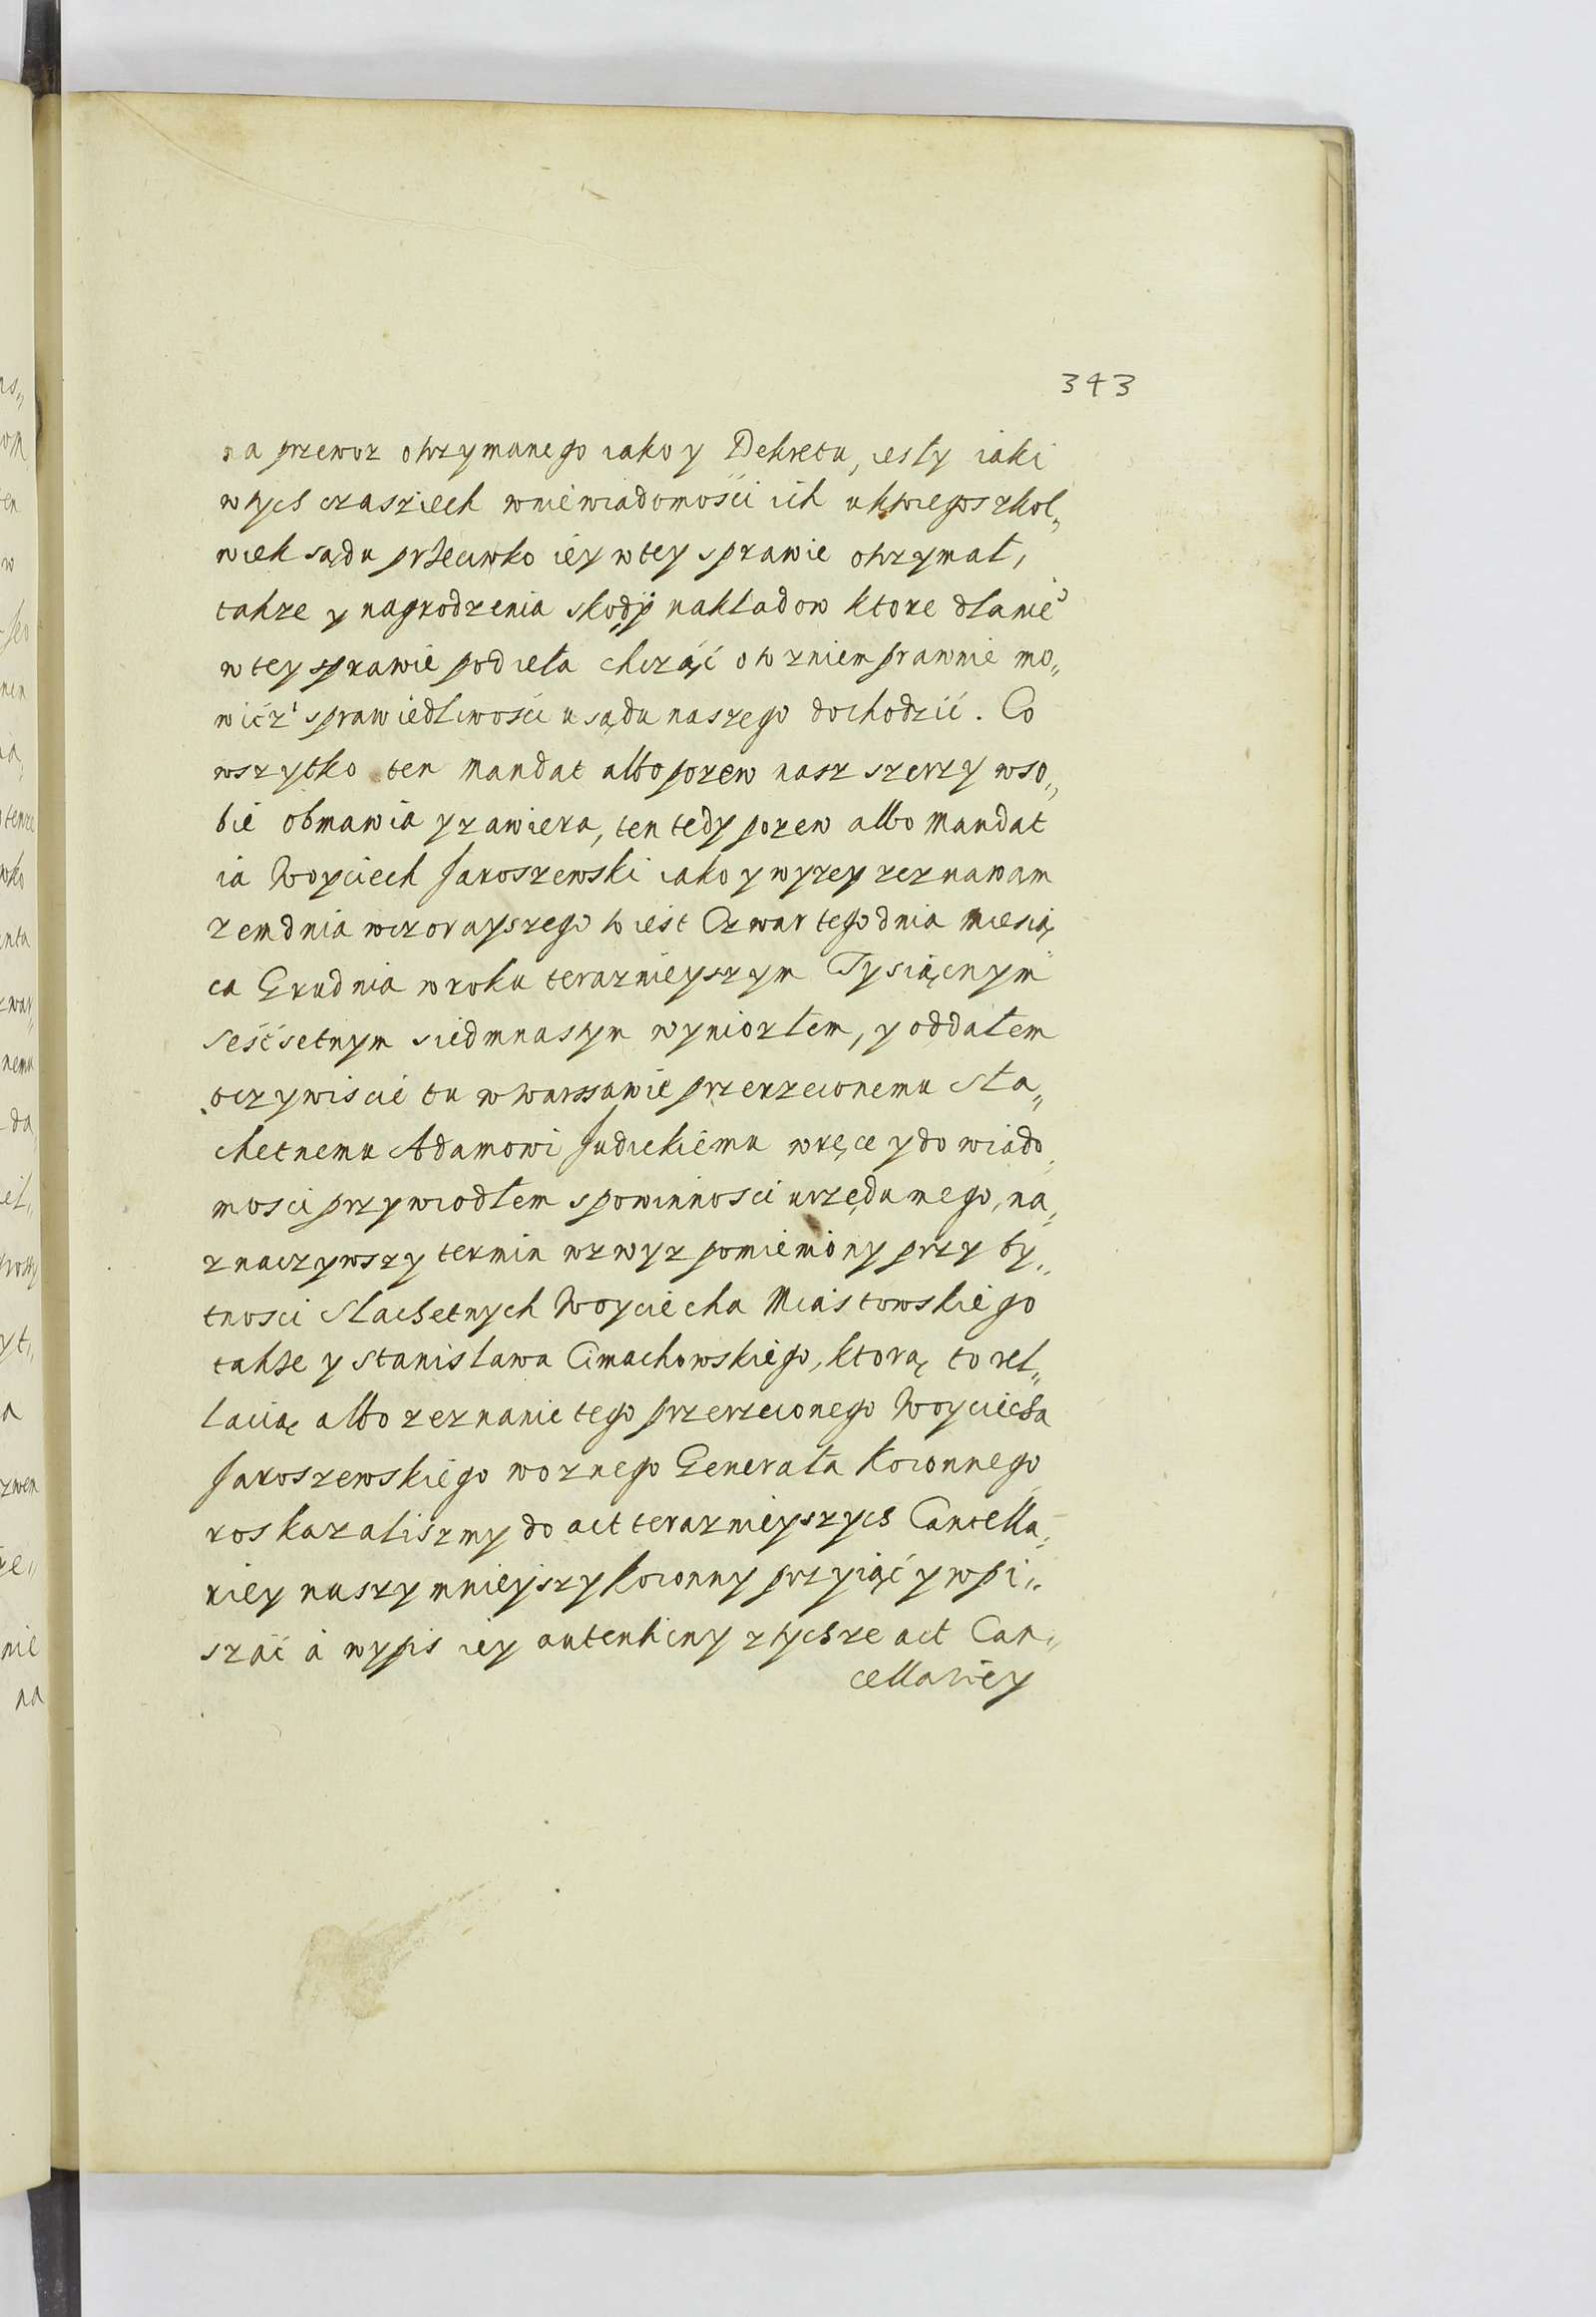 343
na przewoz otrzymanego iako y Dekretu, iesly iaki
wtych czasziech wniewiadomości ich u ktoregoszkol„
wiek sądu przeciwko iey wtey sprawie otrzymał,
takze y nagrodzenia skody nakladow ktore dlanie°
wtey sprawie podieła chcząć oto zniem prawnie mo„
wić z sprawiedliwości u sądu naszego dochodzić. Co
wszytko ten Mandat albo pozew nasz szerzy wso„
bie obmawia y zawiera, ten tedy pozew albo Mandat
ia Woyciech Jaroszewski iako y wyzey zeznawam
zem dnia wczorayszego to iest Czwartego dnia Miesią
ca Grudnia wroku teraznieyszym Tysiącnym
Seśćsetnym siedmnastym wyniozłem, y oddałem
oczywiscie tu w Warssawie przerzeconemu Sla„
chetnemu Adamowi Judickiemu wręce y do wiado„
mosci przywiodłem spowinnosci urzędu mego, na„
znaczywszy termin wzwyz pomieniony przy by„
tnosci Slachetnych Woyciecha Miastowskiego
takze y Stanislawa Cimachowskiego, ktorą to rel„
lacią albo zeznanie tego przerzeconego Woyciecha
Jaroszewskiego woznego Generała Koronnego
roskazaliszmy do act teraznieyszych Cancella„
riey naszy mnieyszy Koronny przyiąć y wpi„
szać a wypis iey autenticny z tychze act Can„
cellariey